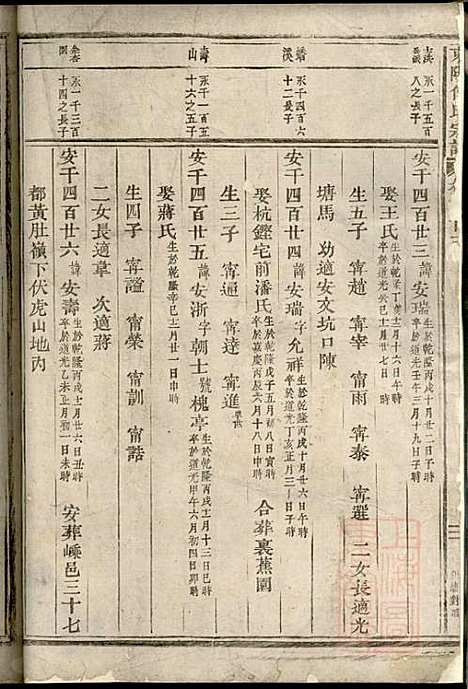 東陽何氏宗譜
永一千五百
八之長子
安千四百廿三諱安瑞生於乾隆丙戌十月廿二日子時
卒於道光壬午三月十九日子時
娶王氏生於乾隆丁亥十二月十六日午時
卒於道光癸巳十二月廿七日
生五子 甯趙 甯宰 甯雨 甯泰 甯選 二女長適光
塘馬 幼適安文坑口陳
塘溪
永一千四百
十二長子
安千四百廿四諱安瑞字允祥生於乾隆丙戌十一月廿六日午時
卒於道光丁亥正月三十
娶杭鏗宅前潘氏生於乾隆戊子五月初八日寅時
卒於嘉慶丙辰六月十八日申時
合葬裏蕉園
生三子 甯通 甯達 甯進
壽山
永一千三百
十六之五子
安千四百廿五諱安浙字朝士號槐亭生於乾隆丙戌十二月十三日巳時
卒於道光甲午六月初四日卯時
娶蔣氏生於乾隆辛巳十二月廿一日申時
生四子 甯證 甯榮 甯訓 甯誥
二女長適韋 次適蔣
永一千三百
十四之長子
安千四百廿六諱安壽生於乾隆丙戌十二月廿六日丑時
卒於道光乙未正月初一日未時
安葬嵊邑三十七
都黃肚嶺下伏虎山地內